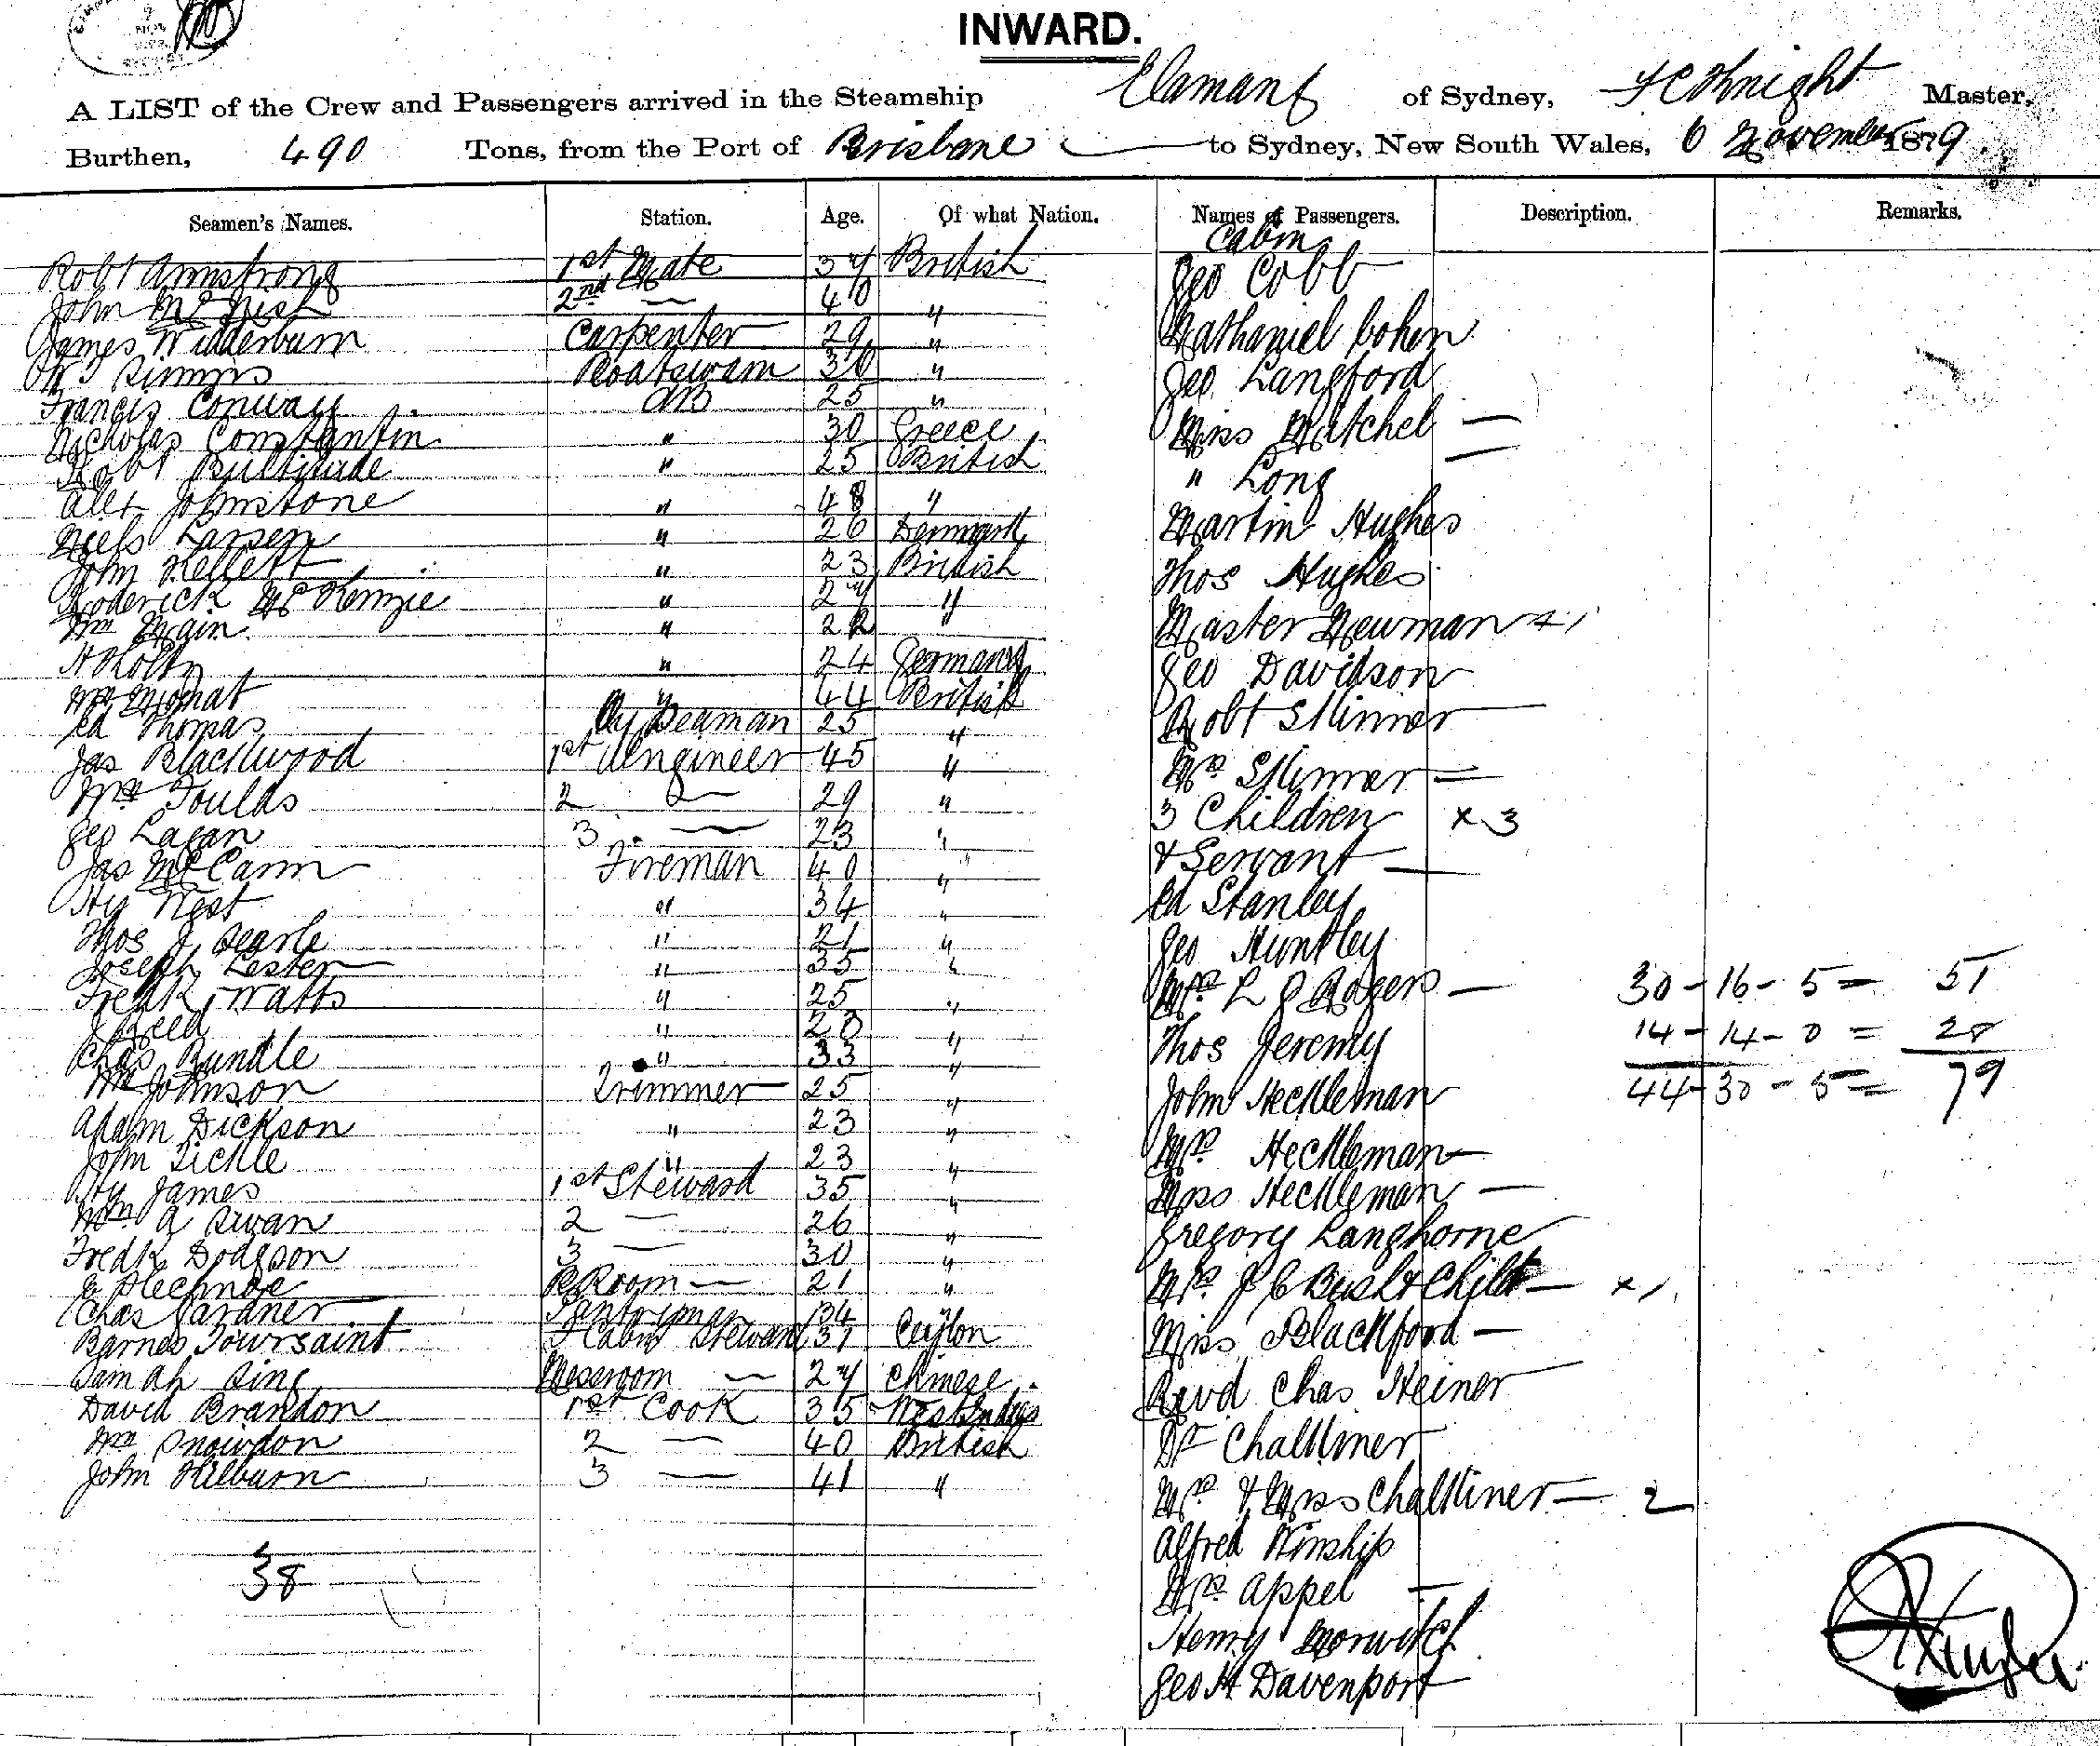 INWARD.
A LIST of the Crew and Passengers arrived in the Steamship Elamang of Sydney, F C Knight Master,
Burthen, 490 Tons, from the Port of Brisbane to Sydney, New South Wales, 6 November 1879
Seamen's Names. Station. Age. Of what Nation. Names of Passengers. Description. Remarks.
Cabin
Robt Armstrong 1st Mate 37 British Geo Cobb
John McNish 2nd — 40 "
James Widderburn Carpenter 29 " Nathaniel Cohen
Wm J Simms Boatswain 30 " Geo Langford
Francis Conway AB 25 "
Nicholas Constantin " 30 Greece Miss Mitchel —
Robt Bultitude " 25 British " Long —
Allr Johnstone " 48 "
Niels Larsen " 26 Denmark Martin Hughes
John Kellett " 23 British Thos Hughes
Roderick McKenzie " 27 " Master Newman + 1
Wm Main " 22 "
H Holtz " 24 Germany Geo Davidson
Wm " 44 British
Ed Thomas Oy Seaman 25 " Robt Skinner
Jas Blackwood 1st Engineer 45 " Mrs Skinner —
Wm Foulds 2 — 29 " 3 Children x 3
Geo Lagan 3 — 23 " & Servant —
Jas McCann Fireman 40 "
Hy West " 34 " Ed Stanley
Thos J Searle " 21 " Geo Huntley
Joseph Lester " 35 " Mrs L J Rogers — 30 - 16 - 5 = 51
Fredk Watts " 25 "
J Reed " 28 " Thos Jeremy 14 - 14 - 0 = 28
Chas Rundle " 33 "
Wm Johnson Trimmer 25 " John Heckleman 44 - 30 - 5 = 79
Adam Dickson " 23 " Mrs Heckleman —
John Tickle " 23 "
Hy James 1st Steward 35 " Miss Heckleman —
Wm A Swan 2 — 26 " Gregory Langhorne
Fredk Dodgson 3 — 30 "
E R Room — 21 " Mrs J C Bush & Child — x 1
Chas Gardner Pantryman 34
Barnes Toursaint F Cabin Steward 31 Ceylon Miss Blackford —
Sam Ah Sing Messroom — 27 Chinese Revd Chas Heiner
David Brandon 1st Cook 35 West Indies
Wm Snowdon 2 — 40 British Dr Chalkiner
John Kilburn 3 — 41 " Mrs & Miss Chalkiner — 2
Alfred Winship
38 Mrs Appel —
Henry Morwitch
Geo H Davenport